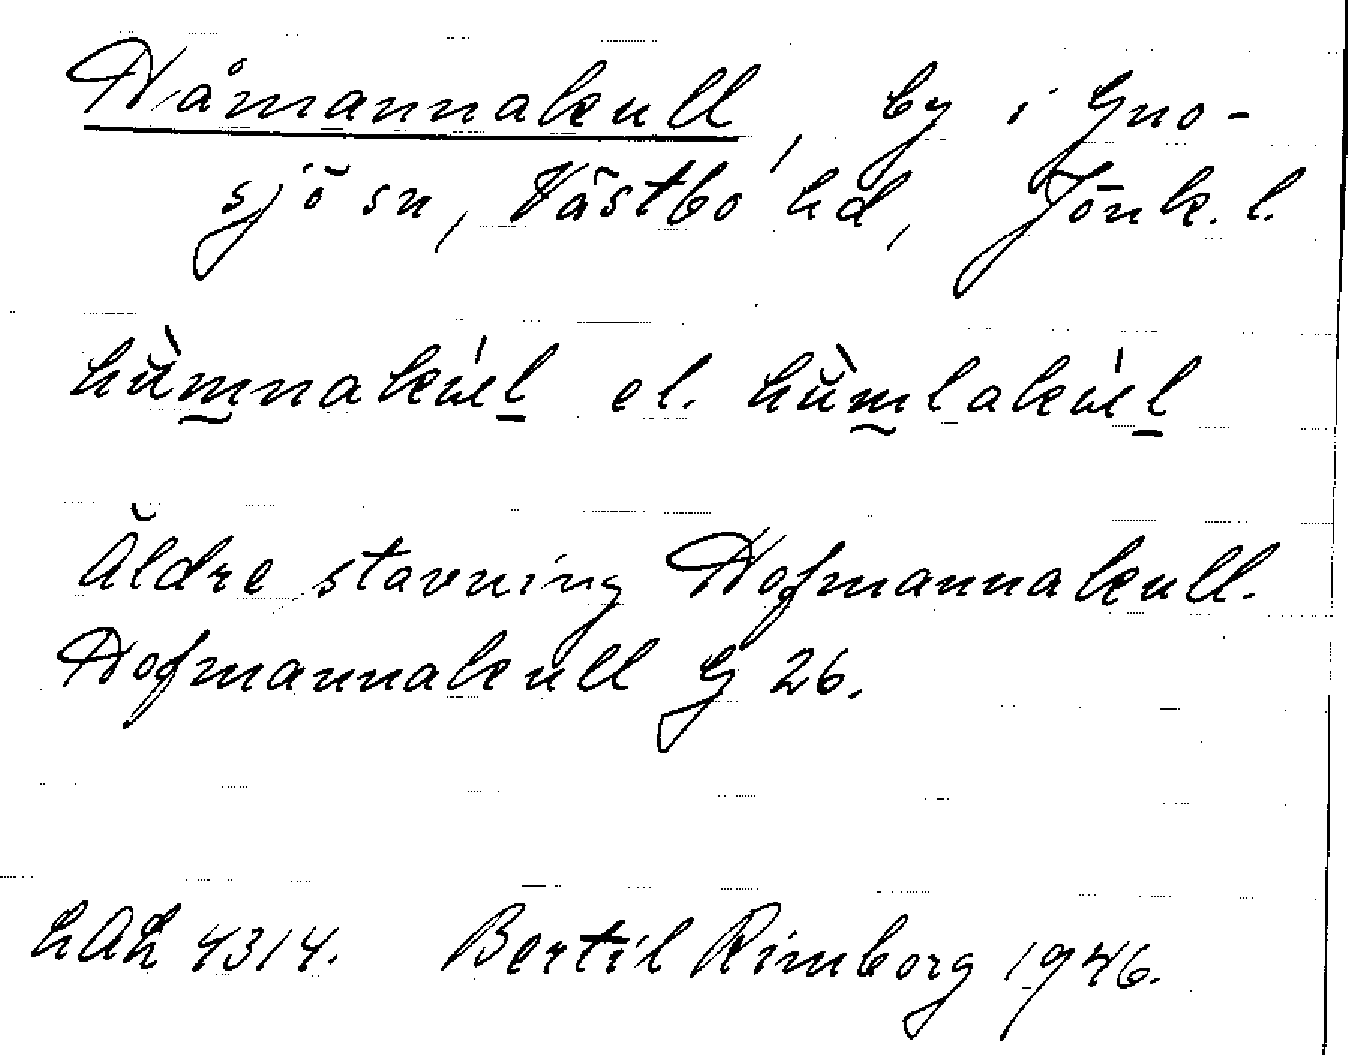 Håmannakull, by i Gno-
sjö sn, Västbo hd, Jönk. l.
hùmnakúl el. hùmlakúl
Äldre stavning Hofmannakull.
Hofmannakull G 26.
LAL 4314. Bertil Rimborg 1946.